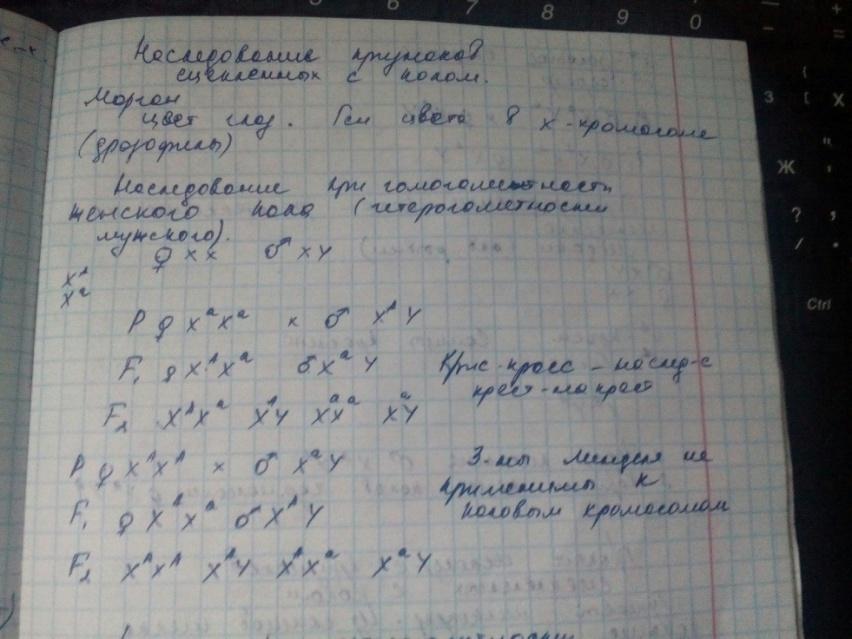 7 8 9 0
Наследование признаков
сцепленных с полом.
Морган
цвет глаз. Ген цвета в х-хромосоме
(дрозофилы)
Наследование при гомогаметности
женского пола (гетерогаметности
мужского).
♀ XX ♂ XY
X^A
X^a
P ♀ X^a X^a × ♂ X^A Y
F₁ ♀ X^A X^a ♂ X^a Y Крис-кросс – наслед-е
крест-накрест
F₂ X^A X^a X^A Y X^a X^a X^a Y
P ♀ X^A X^A × ♂ X^a Y З-ны Менделя не
применимы к
F₁ ♀ X^A X^a ♂ X^A Y половым хромосомам
F₂ X^A X^A X^A Y X^A X^a X^a Y
З
Х
Ж
?
/
Ctrl